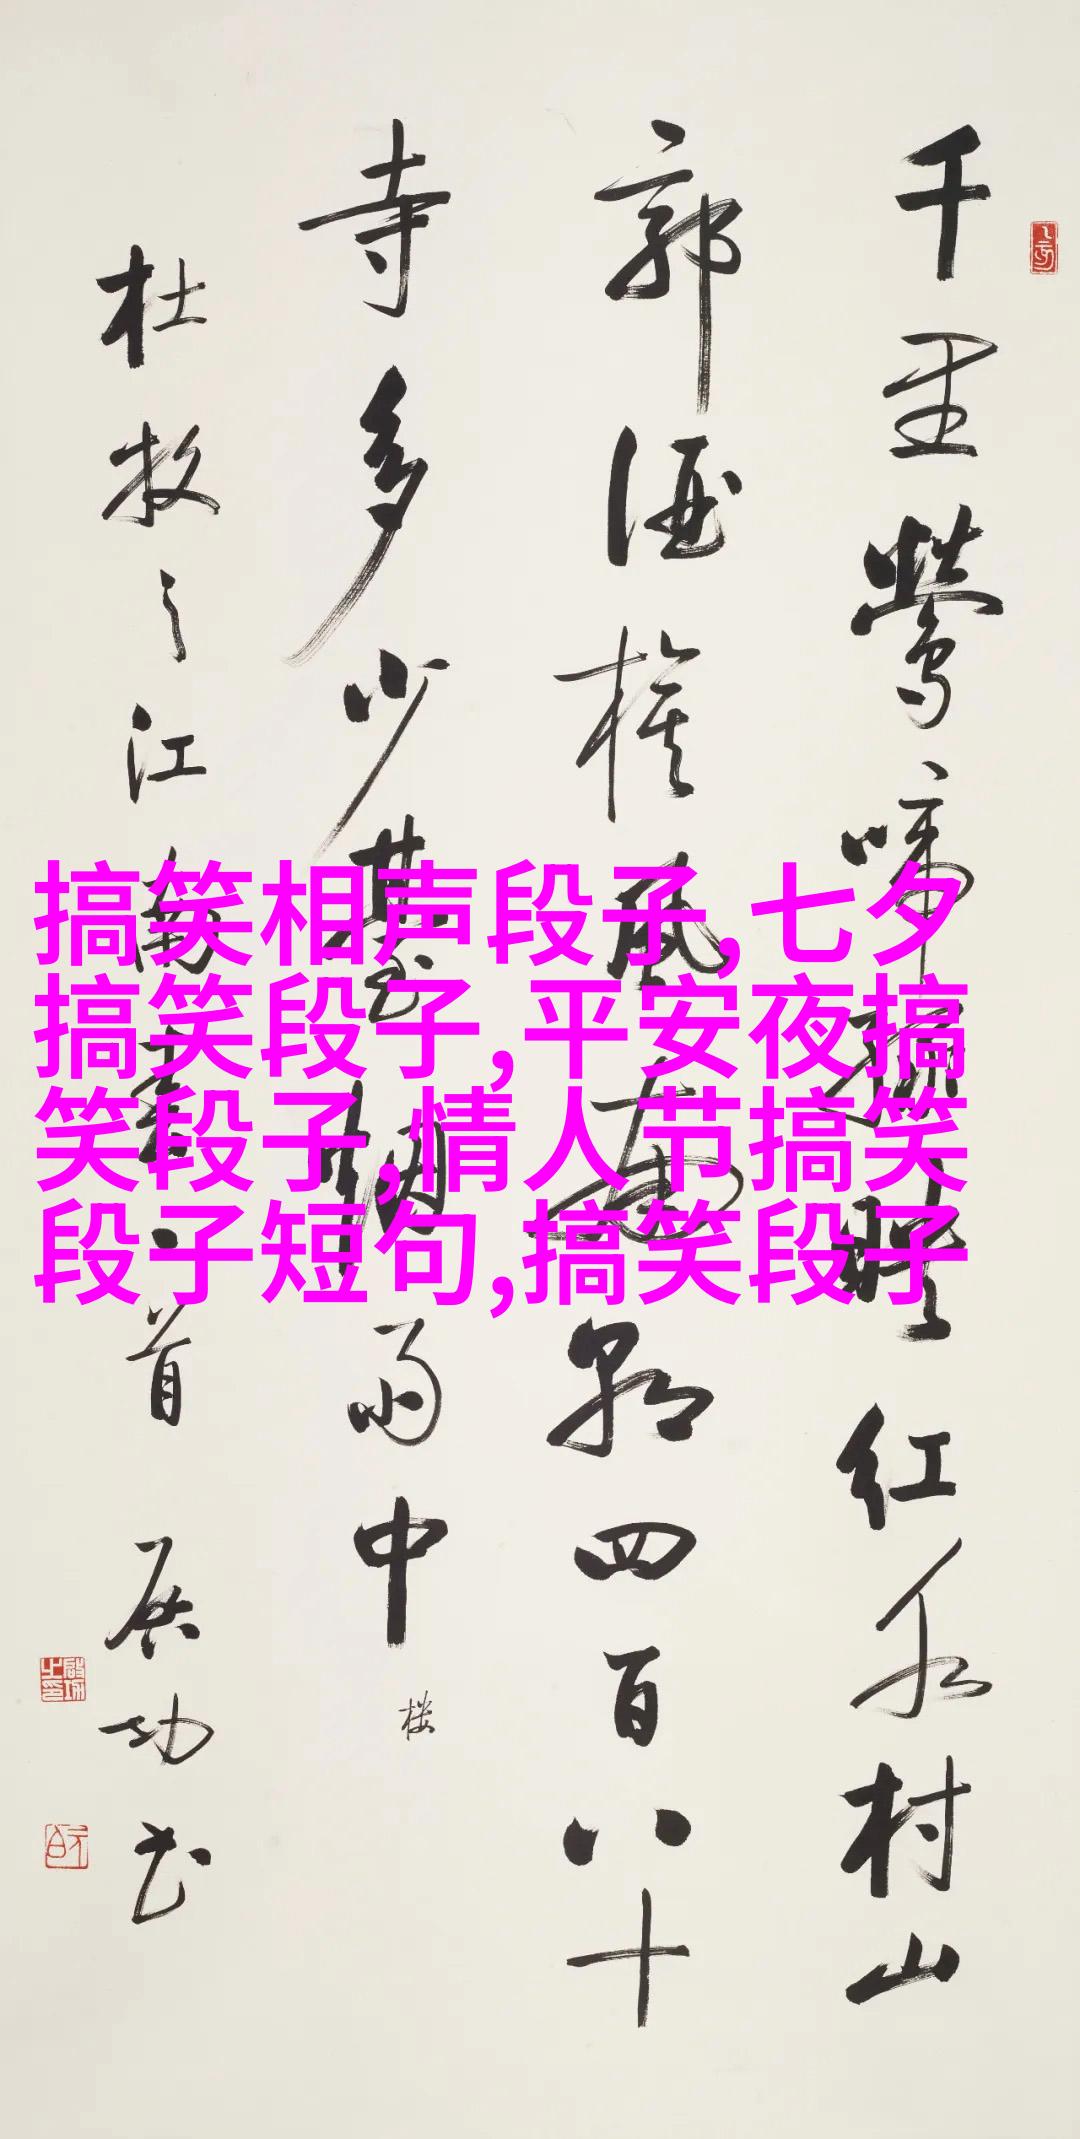 搞笑相声段子,七夕
搞笑段子,平安夜搞
笑段子,情人节搞笑
段子短句,搞笑段子
千里鶯啼綠映红水村山
郭酒旗風南朝四百八十
寺多少臺烟雨中
楼
杜牧之江南春一首 启功书